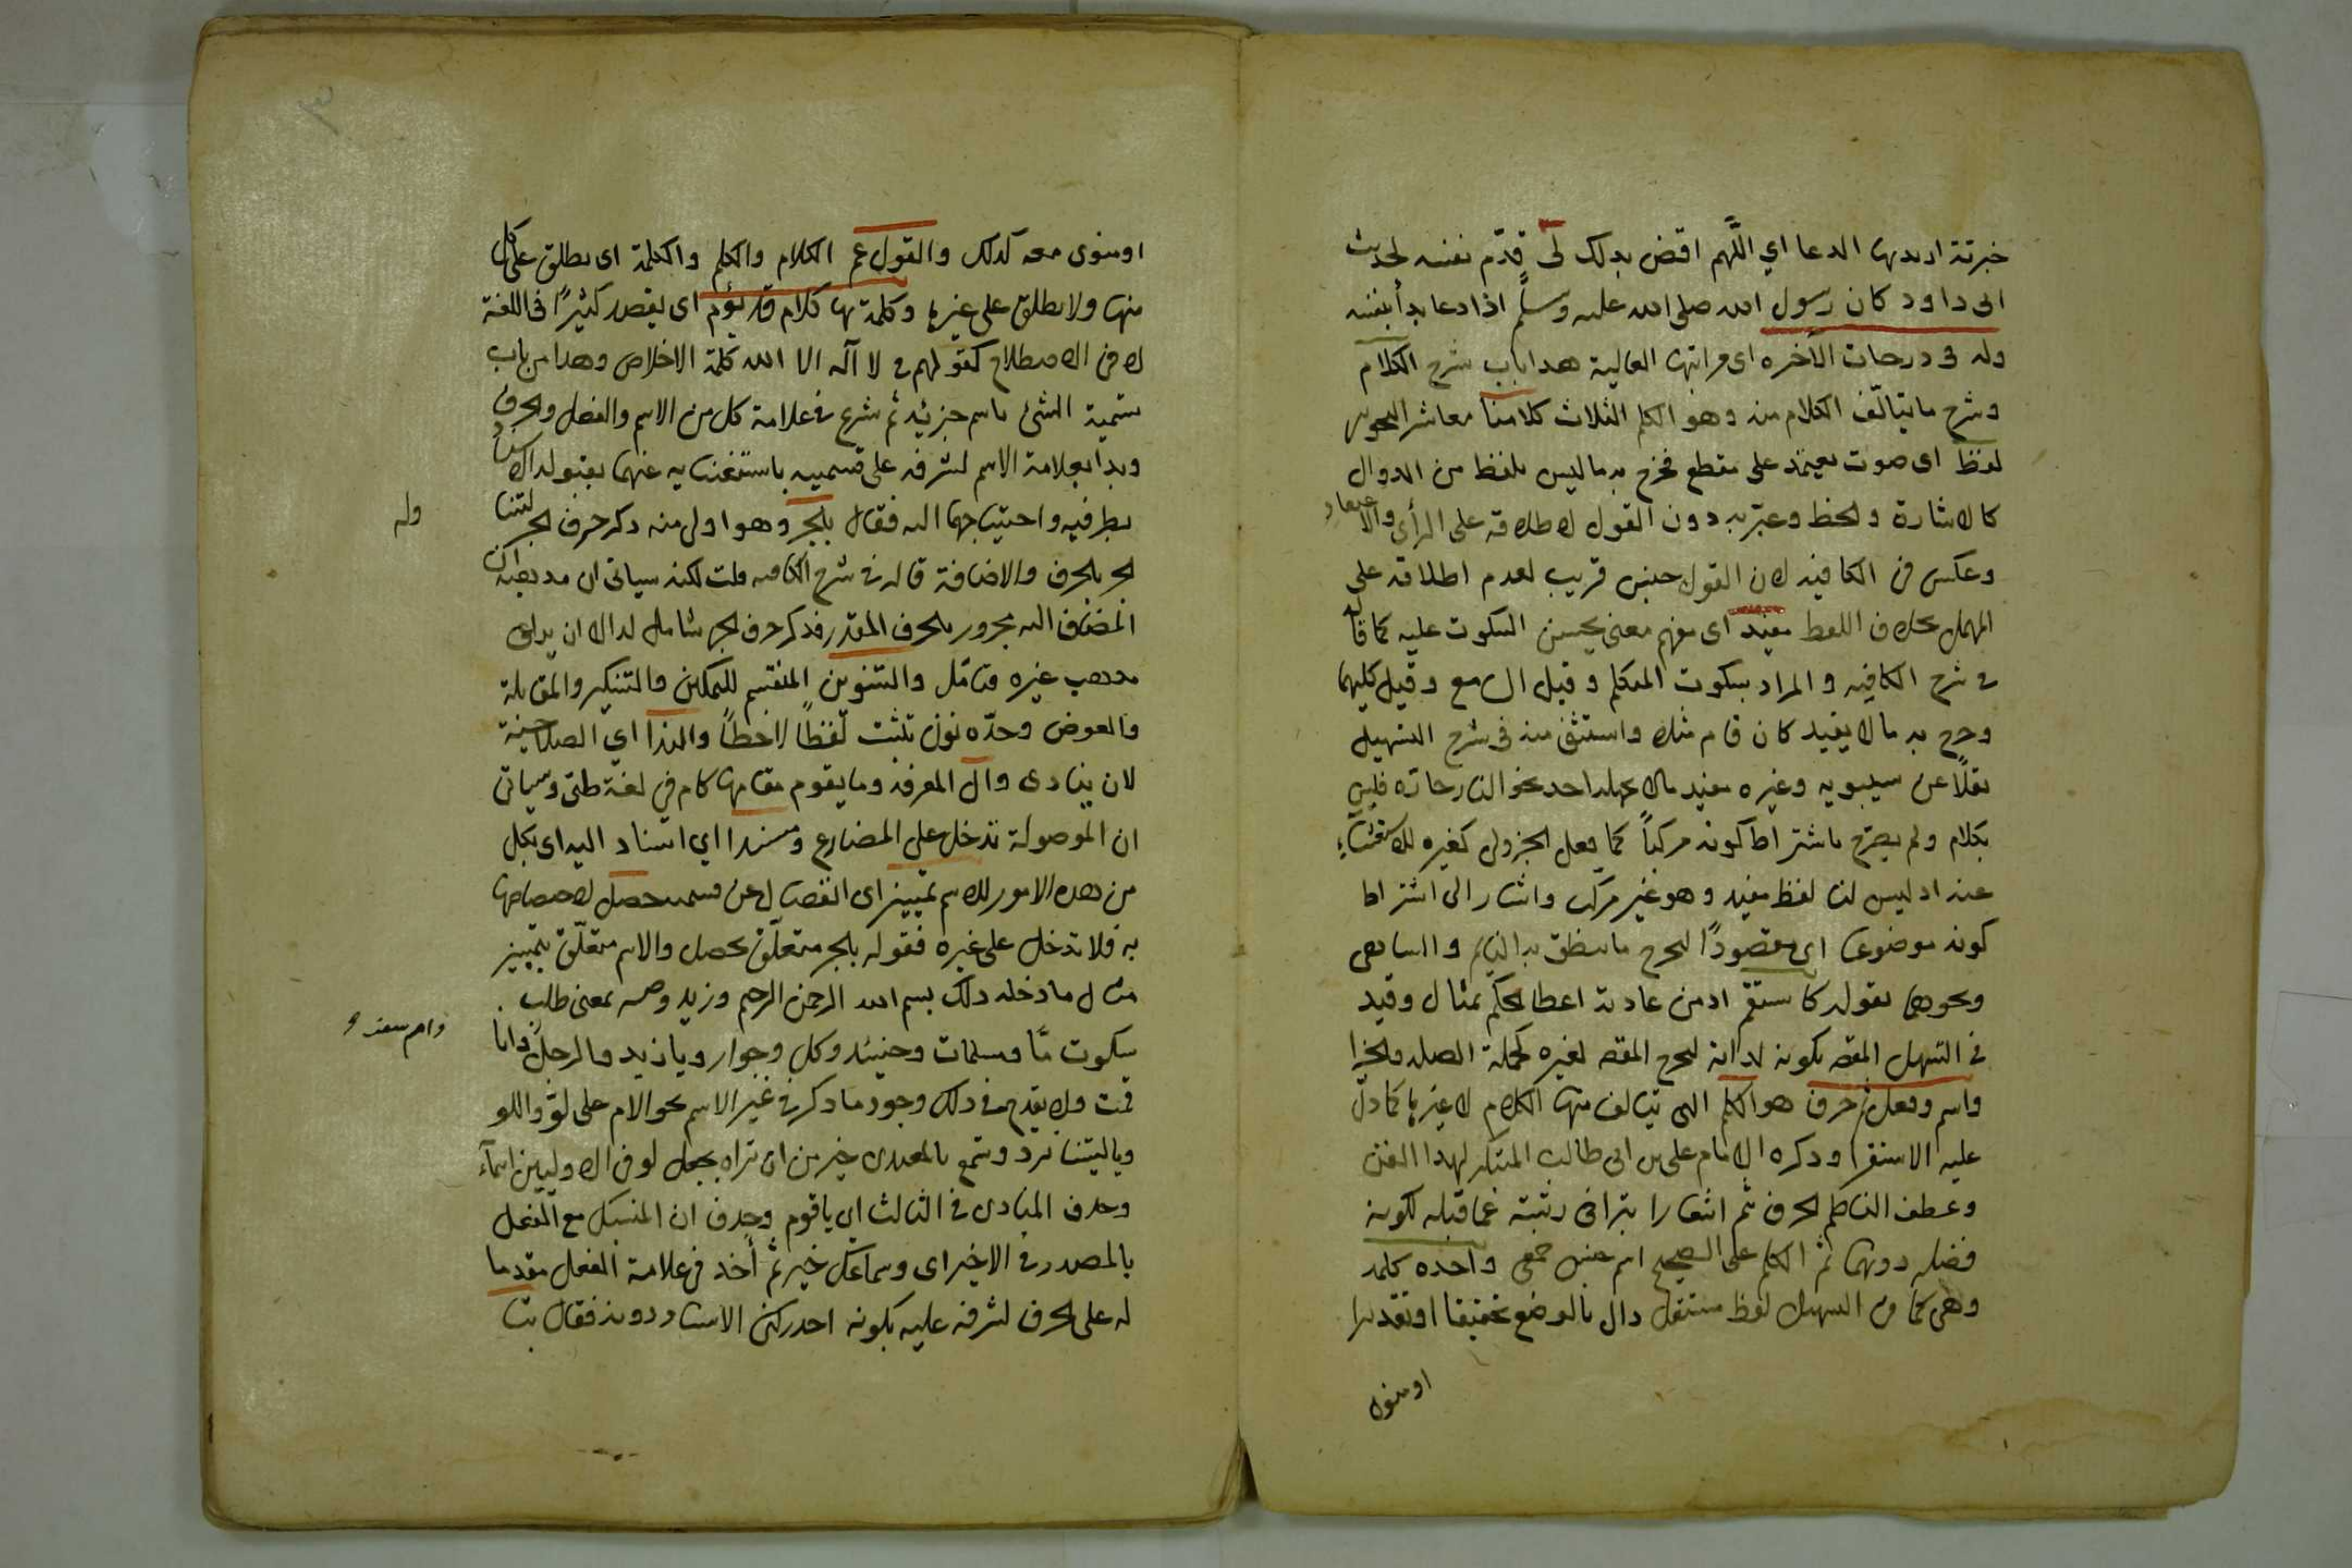 خبرية اريد بها الدعا اي اللّهم اقض بذلك لى قدّم نفسه لحديث
ابى داود كان رسول الله صلى الله عليه وسلم اذا دعا بدأ بنفسه
وله فى درجات الآخره اى مراتبها العالية هذا باب شرح الكلام
وشرح ما يتالّف الكلام منه وهو الكلم الثلاث كلامنا معاشر النحويين
لفظ اى صوت معتمد على مقطع فخرج به ما ليس بلفظ من الدوال
كالاشارة والخط وعبّر به دون القول لاطلاقه على الرأى والاعتقاد
وعكس فى الكافيه لان القول جنس قريب لعدم اطلاقه على
المهمل بخلاف اللفظ مفيد اى مفهم معنى يحسن السكوت عليه كما قاله
فى شرح الكافيه والمراد سكوت المتكلم وقيل السامع وقيل كليهما
وخرج به ما لا يفيد كان قام مثلا واستثنى منه فى شرح التسهيل
نقلاً عن سيبويه وغيره مفيد ما لا يجهله احد نحو النار حارّه فليس
بكلام ولم يصرّح باشتراط كونه مركباً كما فعل الجزولى كغيره للاستغناء
عنه اذ ليس لنا لفظ مفيد وهو غير مركب واشار الى اشتراط
كونه موضوعا اى مقصودًا ليخرج ما ينطق به النايم والساهى
ونحوهما بقوله كاستقم اذ من عادته اعطا الحكم بمثال وقيد
فى التسهيل المقصود بكونه لذاته ليخرج المقصود لغيره كجملة الصله والجزا
واسم وفعل ثم حرف هو الكلم التى يتالف منها الكلام لا غيرها كما دلّ
عليه الاستقرا وذكره الامام على بن ابى طالب المبتكر لهذا الفن
وعطف الناظم الحرف بثم اشعارا بتراخى رتبته عمّا قبله لكونه
فضله دونهما ثم الكلم على الصحيح اسم جنس جمعى واحده كلمه
وهى كما فى التسهيل لفظ مستقل دال بالوضع تحقيقا او تقديرا
او منوى
او منوى معه كذلك والقول عم الكلام والكلم والكلمة اى يطلق على كل
منها ولا يطلق على غيرها وكلمة بها كلام قد يؤم اى يقصد كثيرًا فى اللغة
لا فى الاصطلاح كقولهم فى لا آله الا الله كلمة الاخلاص وهذا من باب
تسمية الشئ باسم جزئه ثم شرع فى علامة كل من الاسم والفعل والحرف
وبدا بعلامة الاسم لشرفه على قسيميه باستغنايه عنهما بقبوله الاسناد
بطرفيه واحتياجهما اليه فقال بالجر وهو اولى من ذكر حرف الجر لتناوله
الجر بالحرف والاضافة قاله فى شرح الكافيه قلت لكنه سياتى ان مذهبه ان
المضاف اليه مجرور بالحرف المقدر فذكر حرف الجر شامل له الا ان يراعى
مذهب غيره فتأمّل والتنوين المنقسم للتمكين والتنكير والمقابلة
والعوض وحدّه نون تثبت لفظًا لا خطاً والندا اي الصلاحية
لان ينادى وال المعرفة وما يقوم مقامها كام في لغة طى وسياتى
ان الموصولة تدخل على المضارع ومسندا اي اسناد اليه اى بكل
من هذه الامور للاسم تمييز اى انفصال عن قسيميه حصل لاختصاصها
به فلا تدخل على غيره فقوله بالجر متعلّق بحصل والاسم متعلّق بتمييز
مثال ما دخله ذلك بسم الله الرحمن الرحيم وزيد وصه بمعنى طلب
سكوت مّا ومسلمات وحينئذ وكل وجوار ويا زيد والرجل وانا
قمت ولا يقدح فى ذلك وجود ما ذكر فى غير الاسم نحو الام على لوّ
ويا ليتنا نرد وتسمع بالمعيدى خير من ان تراه بجعل لو فى الاوليين اسمآء
وحذف المنادى فى الثالث اى يا قوم وحذف ان المنسبك مع الفعل
بالمصدر فى الاخير اى وسماعك خير ثم أخذ فى علامة الفعل مقدما
له على الحرف لشرفه عليه بكونه احد ركنى الاسناد دونه فقال بتا